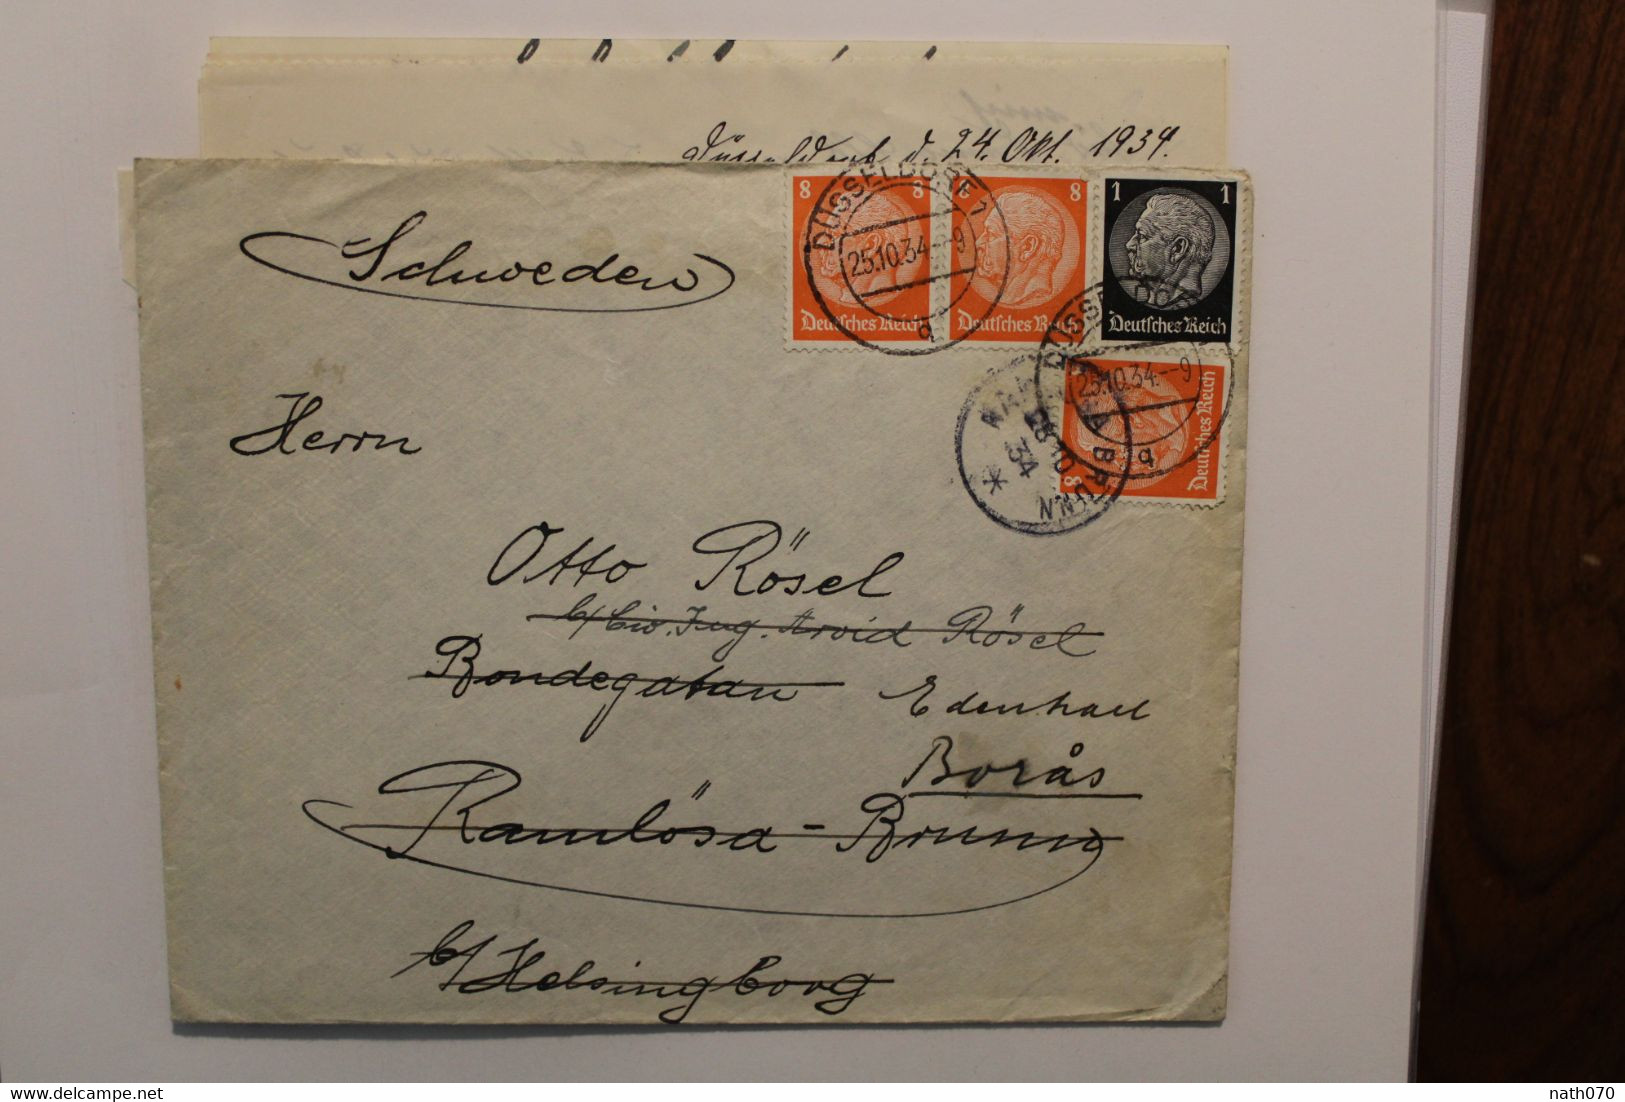 Düsseldorf d. 24. Okt. 1934.
8 8
8
1 1
DÜSSELDORF 1
25.10.34.--9
q
Deutsches Reich
Deutsches Reich
Deutsches Reich
DÜSSELDORF
25.10.34.--9
q
8
Deutsches Reich
BRUNN
28 10
34
Schweden
Herrn
Otto Rösel
b/ Civ. Ing. Arvid Rösel
Bondegatan
Edenhall
Borås
Ramlösa-Brunn
b/ Helsingborg
nath070